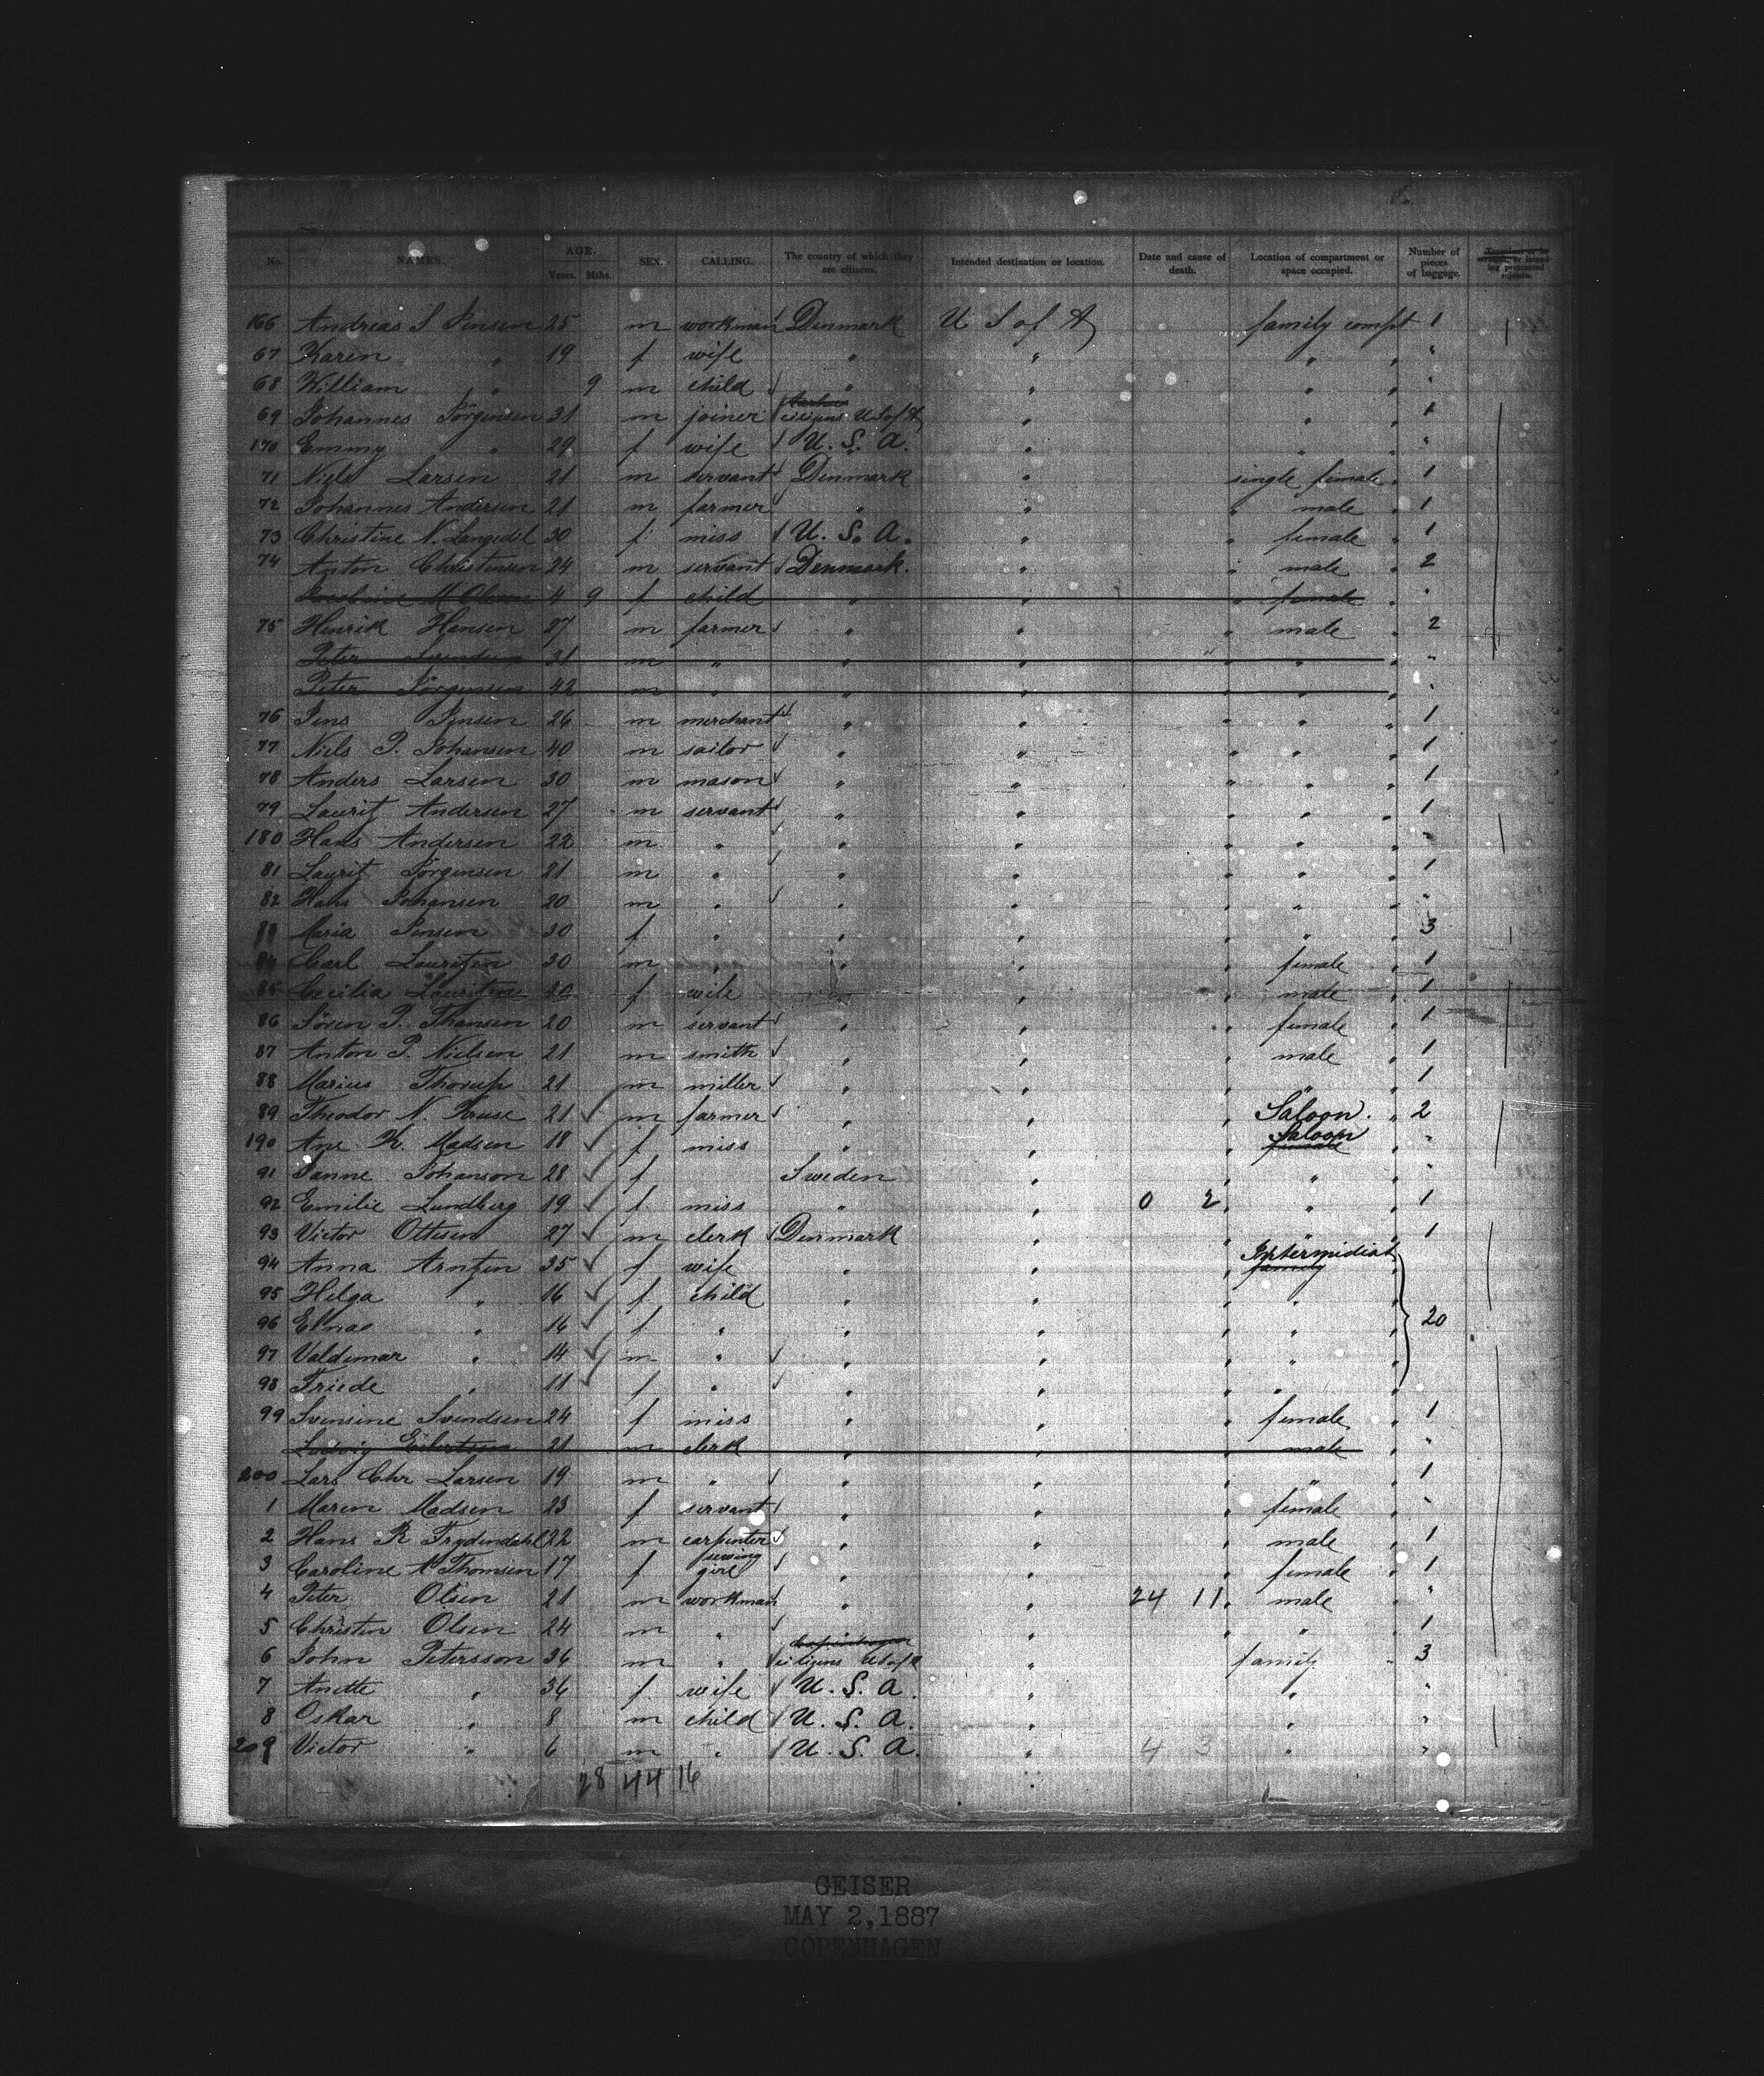 No. NAMES. AGE. Years. Mths. SEX. CALLING. The country of which they are citizens. Intended destination or location. Date and cause of death. Location of compartment or space occupied. Number of pieces of baggage.
166 Andreas S Jensen 25 m workman Denmark U S of A family compt 1
67 Karen " 19 f wife " " " " "
68 William " 9 m child " " " " "
69 Johannes Jörgensen 31 m joiner citizens U S of A " " " 1
170 Emmy " 29 f wife U. S. A. " " " "
71 Niels Larsen 21 m servant Denmark " single female " 1
72 Johannes Andersen 21 m farmer " " " male " 1
73 Christine N. Langedel 30 f miss U. S. A. " " female " 1
74 Anton Christensen 24 m servant Denmark. " " male " 2
M Olsen 4 9 f child " " " female " "
75 Henrik Hansen 27 m farmer " " " male " 2
Peter Svendsen 31 m " " " " " " "
Peter Jörgensen 42 m " " " " " " "
76 Jens Jensen 26 m merchant " " " " " 1
77 Niels P. Johansen 40 m sailor " " " " " 1
78 Anders Larsen 30 m mason " " " " " 1
79 Laurit Andersen 27 m servant " " " " " 1
180 Hans Andersen 22 m " " " " " " "
81 Laurit Jörgensen 21 m " " " " " " 1
82 Hans Johansen 20 m " " " " " " "
83 Maria Jensen 30 f " " " " " " 3
84 Carl Lauritzen 30 m " " " " female " 1
85 Cecilia Lauritzen 20 f wife " " " male " 1
86 Sören P. Thansen 20 m servant " " " female " 1
87 Anton P. Nielsen 21 m smith " " " male " 1
88 Marius Thorup 21 m miller " " " " " 1
89 Theodor N. Kruse 21 m farmer " " " Saloon. " 2
190 Ane K. Madsen 18 f miss " " " Saloon female " "
91 Johanson 28 f Sweden " " " "
92 Emilie Lundberg 19 f miss " " 0 2 " " 1
93 Victor Ottesen 27 m clerk Denmark " " " " 1
94 Anna Arntzen 35 f wife " " " Intermediat family "
95 Helga " 16 f child " " " " "
96 Elna " 14 f " " " " " " 20
97 Valdemar " 14 m " " " " " "
98 Friede " 11 f " " " " " "
99 Svensine Svendsen 24 f miss " " " female " 1
Ludvig 21 m clerk " " " male " "
200 Lars Chr Larsen 19 m " " " " " " 1
1 Maren Madsen 23 f servant " " " female " "
2 Hans R Frydendahl 22 m carpenter " " " male " 1
3 Caroline Thomsen 17 f sewing girl " " " female " 1
4 Peter Olsen 21 m workman " " 24 11 " male "
5 Christen Olsen 24 m " " " " " " 1
6 John Petersson 36 m " Copenhagen citizens U S of A " family " 3
7 Anette " 36 f wife U. S. A. " " "
8 Oskar " 8 m child U. S. A. " " "
209 Victor " 6 m " U. S. A. " 4 3 " "
28 44 16
GEISER
MAY 2, 1887
COPENHAGEN